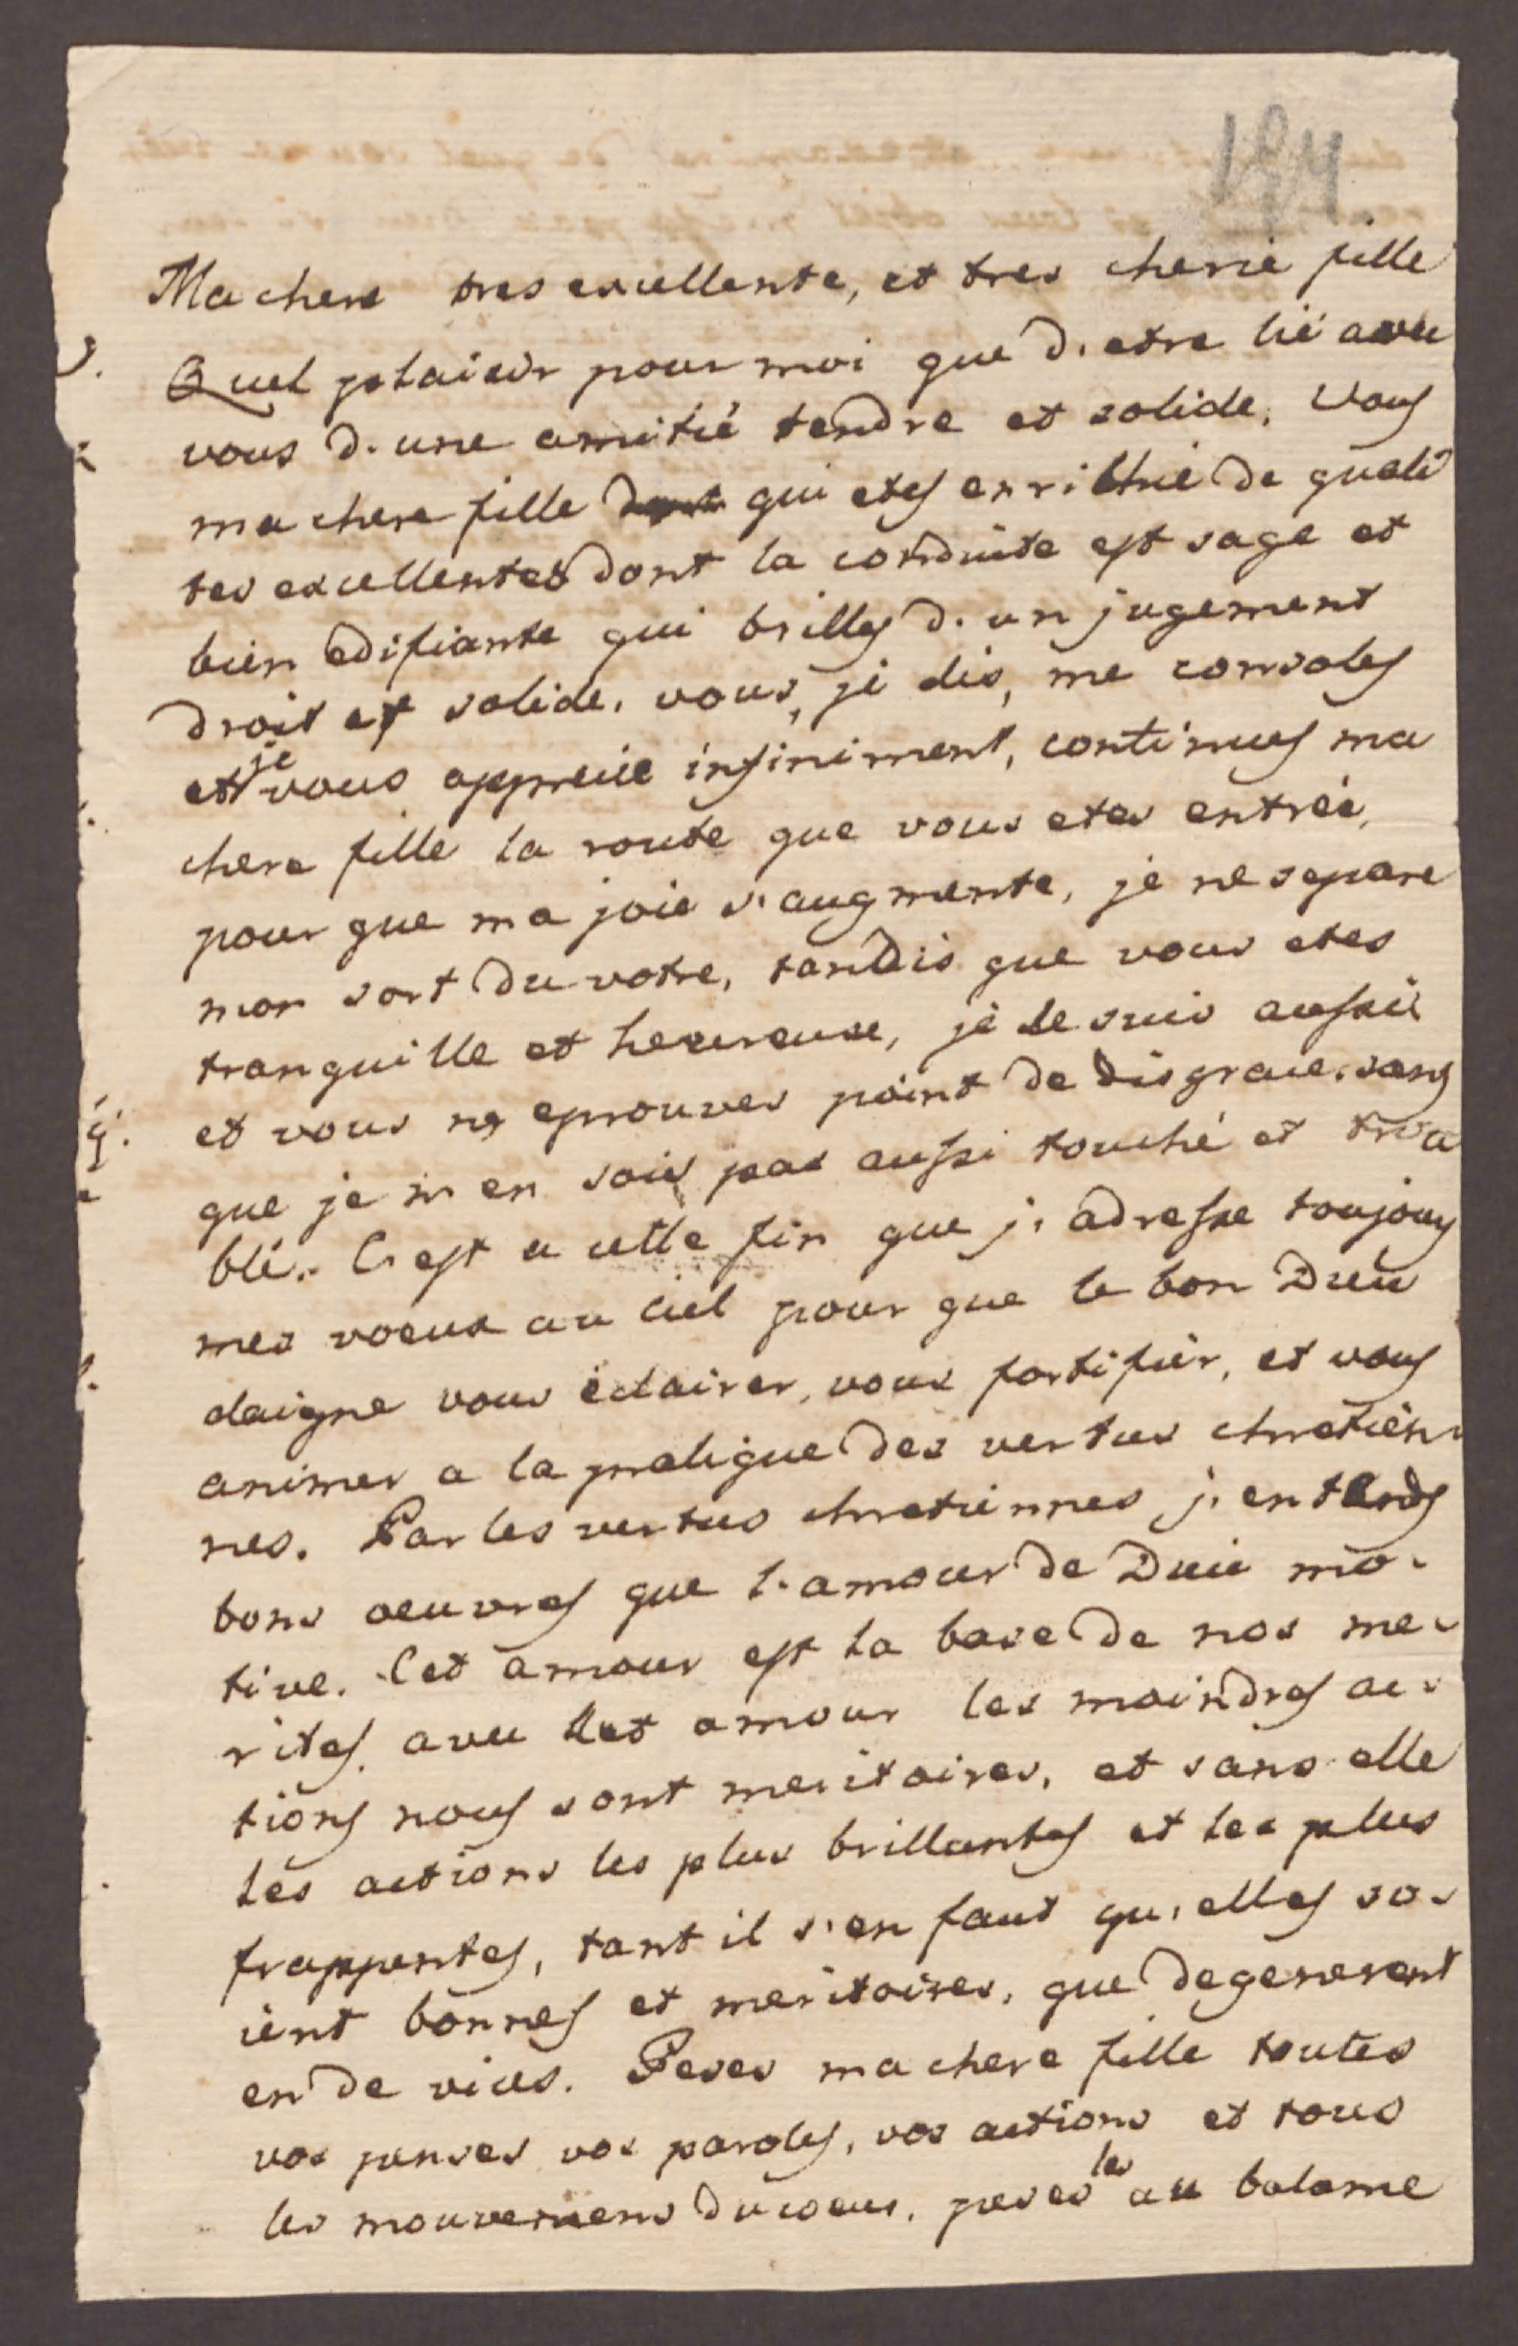 Ma chere tres excellente, et tres cherie fille
Quel plaisir pour moi que d'etre lié avec
vous d'une amitié tendre et solide, vous
ma chere fille qui etes enrichie de quali
tes excellentes dont la conduite est sage et
bien edifiante qui brilles d'un jugement
droit et solide, vous, je dis, me consoles
et je vous apprecie infiniment, continues ma
chere fille la route que vous etes entrée,
pour que ma joie s'augmente, je ne separe
mon sort du votre, tandis que vous etes
tranquille et heureuse, je le suis aussi
et vous ne eprouves point de disgrace, sans
que je n'en sois pas aussi touché et trou
blé. C'est a cette fin que j'adresse toujours
mes voeux au ciel pour que le bon Dieu
daigne vous éclairer, vous fortifier, et vous
animer a la pratique des vertus chretien-
nes. Par les vertus chretiennes j'entends
bons oeuvres que l'amour de Dieu mo-
tive. Cet amour est la base de nos me-
rites, avec cet amour les moindres ac-
tions nous sont meritoires, et sans elle
les actions les plus brillantes et les plus
frappentes, tant il s'en faut qu'elles so-
ient bonnes et meritoires, que degenerent
en de vices. Peses ma chere fille toutes
vos penses vos paroles, vos actions et tous
les mouvemens du coeur, peses les au balance